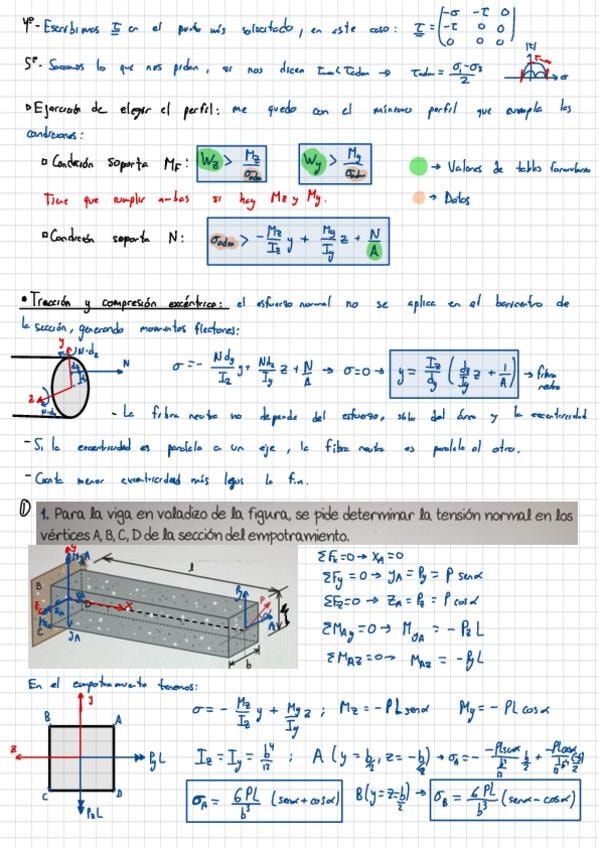 4º- Escribimos T en el punto más solicitado, en este caso: T = (-σ -τ 0
-τ 0 0
0 0 0)
5º- Sacamos lo que nos piden, si nos dicen τmax < τadm → τadm = (σ1-σ3)/2 |τ| τmax σ
▷ Ejercicio de elegir el perfil: me quedo con el mínimo perfil que cumpla las
condiciones:
▫ Condición soporta MF: Wz > Mz/σadm Wy > My/σadm → Valores de tablas formulario
Tiene que cumplir ambas si hay Mz y My. → Datos
▫ Condición soporta N: σadm > - Mz/Iz y + My/Iy z + N/A
• Tracción y compresión excéntrica: el esfuerzo normal no se aplica en el baricentro de
la sección, generando momentos flectores:
y N·dz
N
z
σ = - Ndy/Iz y + Ndz/Iy z + N/A → σ=0 → y = Iz/dy (dz/Iy z + 1/A) → fibra neutra
- La fibra neutra no depende del esfuerzo, sólo del área y la excentricidad
- Si la excentricidad es paralela a un eje, la fibra neutra es paralela al otro.
- Cuanta menor excentricidad más lejos la f.n.
① 1. Para la viga en voladizo de la figura, se pide determinar la tensión normal en los
vértices A, B, C, D de la sección del empotramiento.
y l B D x C P A b
ΣFx=0 → XA=0
ΣFy=0 → YA = Py = P senα
ΣFz=0 → ZA = Pz = P cosα
ΣMAy=0 → MyA = - PzL
ΣMAz=0 → MAz = - PyL
En el empotramiento tenemos:
y
B A
z PyL
C D
PzL
σ = - Mz/Iz y + My/Iy z ; Mz = -PL senα My = - PL cosα
Iz = Iy = b⁴/12 ; A (y = b/2, z = -b/2) → σA = - -PLsenα/(b⁴/12) b/2 + -PLcosα/(b⁴/12) (-b/2)
σA = 6PL/b³ (senα + cosα) B (y=z=b/2) → σB = 6PL/b³ (senα - cosα)